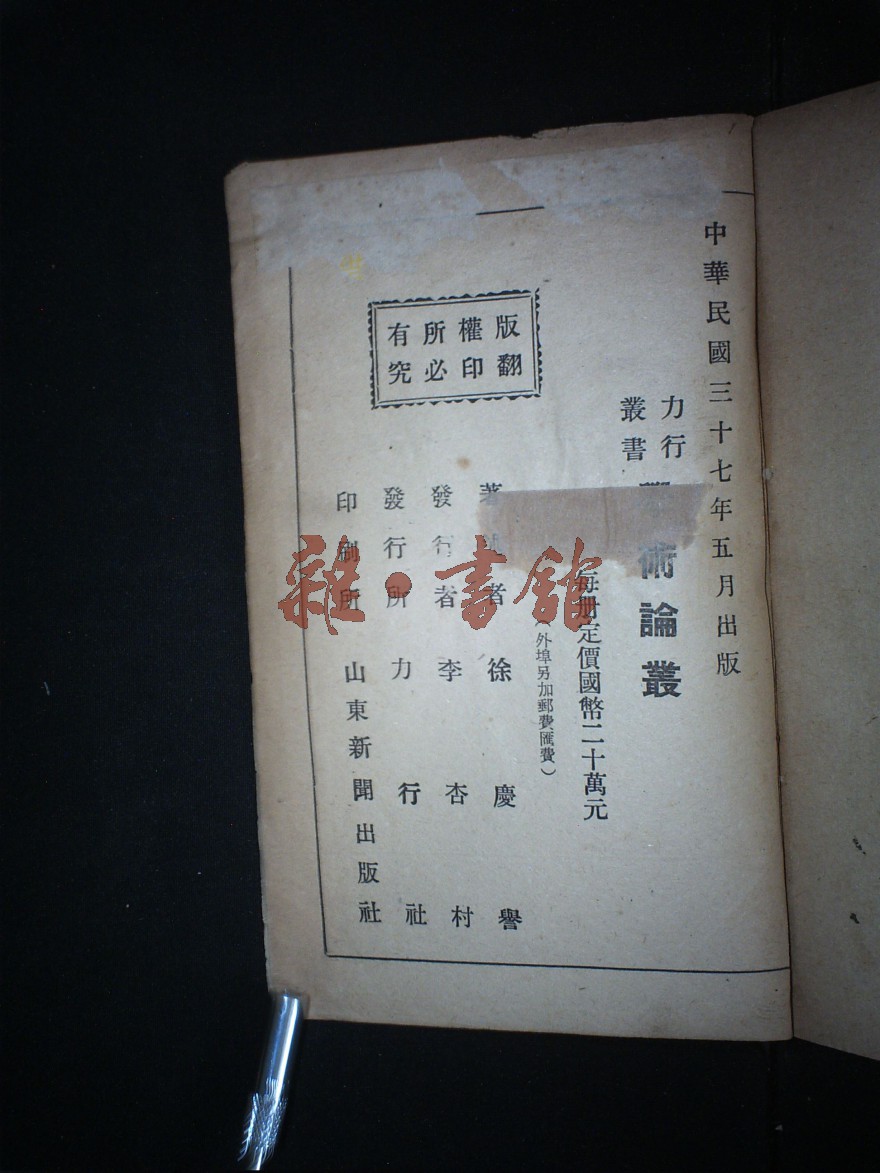 中華民國三十七年五月出版
力行
叢書
學術論叢
每册定價國幣二十萬元
（外埠另加郵費匯費）
版權所有
翻印必究
著述者 徐慶譽
發行者 李杏村
發行所 力行社
印刷所 山東新聞出版社
雜·書館